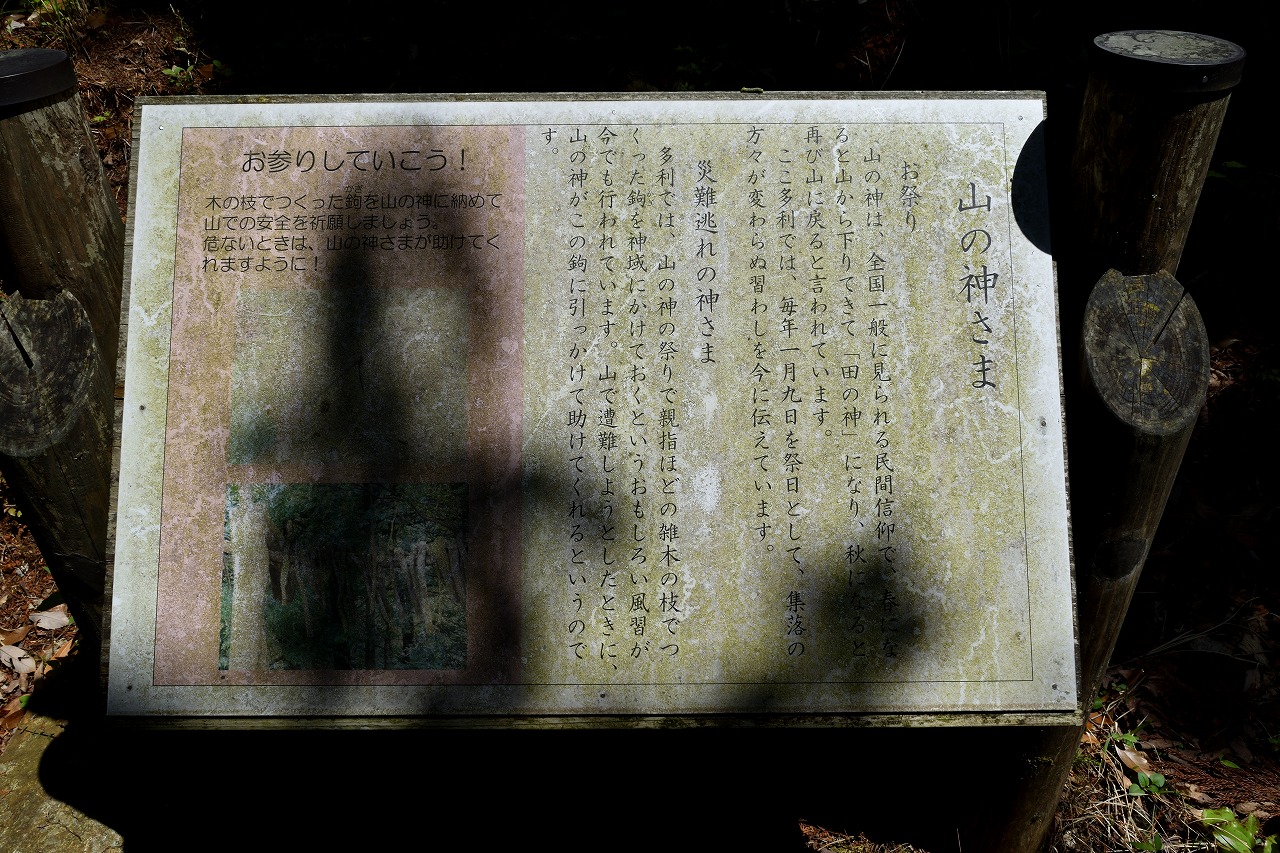 山の神さま
お祭り
山の神は、全国一般に見られる民間信仰で、春にな
ると山から下りてきて「田の神」になり、秋になると
再び山に戻ると言われています。
ここ多利では、毎年一月九日を祭日として、集落の
方々が変わらぬ習わしを今に伝えています。
災難逃れの神さま
多利では、山の神の祭りで親指ほどの雑木の枝でつ
くった鉤を神域にかけておくというおもしろい風習が
今でも行われています。山で遭難しようとしたときに、
山の神がこの鉤に引っかけて助けてくれるというので
す。
お参りしていこう！
木の枝でつくった鉤を山の神に納めて
山での安全を祈願しましょう。
危ないときは、山の神さまが助けてく
れますように！